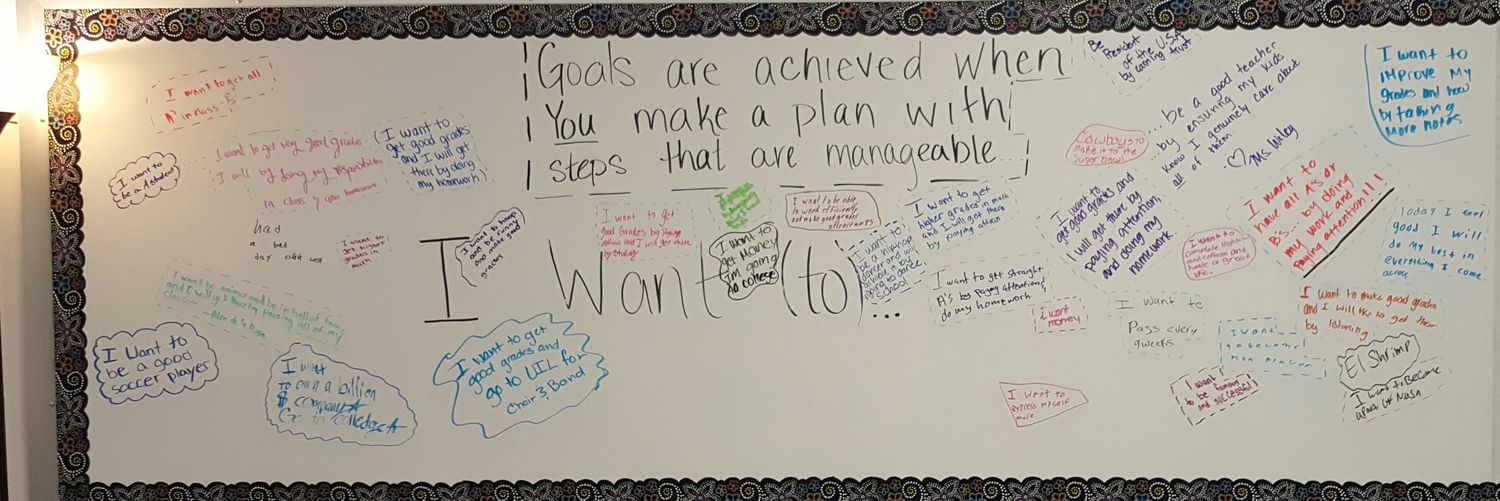 Goals are achieved when
You make a plan with
steps that are manageable
I Want (to)
...
I want to get all
A's in class
I want to
be a A student
I want to get very good grades
I will by doing my responsibility
in class
I want to
get good grades
and I will get
there by doing
my homework
had
a bed
day ohh well
I want to
get higher
grades in math
I Want to
be a good
soccer player
I want
to own a billion
$ company
Go to colledge
I want to get
good grades and
go to UIL for
Choir & Band
and make good
grades
I want to get
Good Grades by Paying
I want to be able
to work efficiently
I want to
get Money
I'm going
to college
I want to
be a hiphop
dancer and will
achieve it by
going to dance
school
I want to get
higher grades in math
and I will get there
by paying attion
I want to get straight
A's by paying attention &
do my homework.
Be
President
of the U.S.A
by earning trust
Cowboys to
make it to the
Super bowl
... be a good teacher
by ensuring my kids
know I genuinely care about
all of them.
♡ Ms. Wiley
I want to
improve my
grades and how
by taking
more notes
I want to
get good grades and
I will get there by
paying attention,
and doing my
homework
I want to
and college and
have a great
life.
I want to
have all A's or
B's... by doing
my work and
Paying attention!!!
Today I feel
good I will
do my best in
everything I come
across
I want
money
I want to
Pass every
9weeks
I want
to become
I want to make good grades
and I will
by listening
El Shrimp
I want to Become
apart of Nasa
I want
to be famous
and successful
I want to
express myself
more